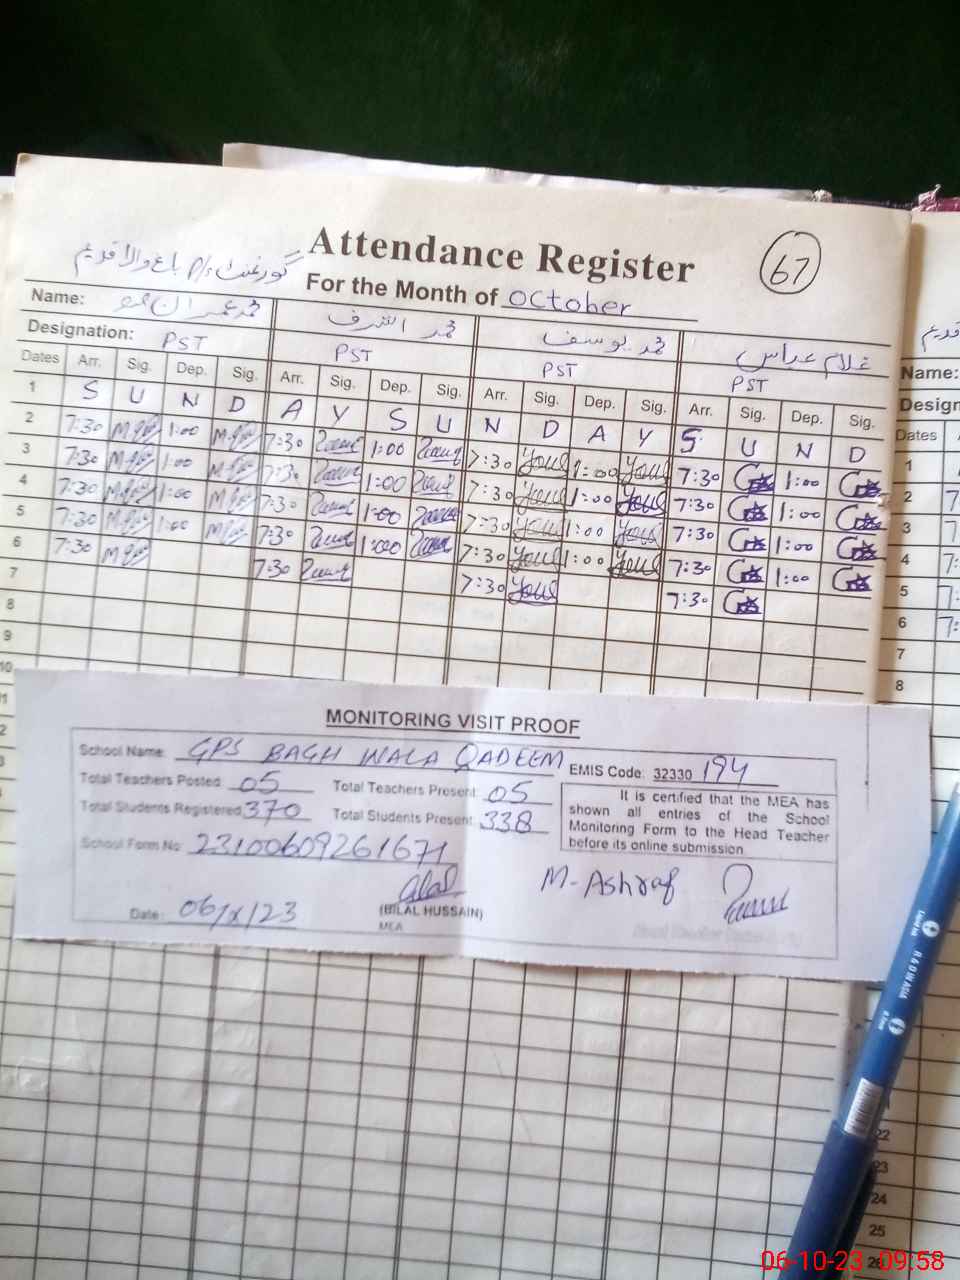 Attendance Register
67
گورنمنٹ P/s باغ والا قدیم
For the Month of October
Name: محمد عمران محمد اشرف محمد یوسف غلام عباس
Designation: PST PST PST PST
Dates Arr. Sig. Dep. Sig. Arr. Sig. Dep. Sig. Arr. Sig. Dep. Sig. Arr. Sig. Dep. Sig.
1 S U N D A Y S U N D A Y S U N D
2 7:30 1:00 7:30 1:00 7:30 1:00 7:30 1:00
3 7:30 1:00 7:30 1:00 7:30 1:00 7:30 1:00
4 7:30 1:00 7:30 1:00 7:30 1:00 7:30 1:00
5 7:30 1:00 7:30 1:00 7:30 1:00 7:30 1:00
6 7:30 7:30 7:30 7:30
7
8
9
10
Name:
Dates
1
2
3
4
5
6
7
8
MONITORING VISIT PROOF
School Name: GPS BAGH WALA QADEEM
EMIS Code: 32330 194
Total Teachers Posted 05 Total Teachers Present 05
Total Students Registered 370 Total Students Present 338
It is certified that the MEA has
shown all entries of the School
Monitoring Form to the Head Teacher
before its online submission
School Form No 23100609261671
M-Ashraf
Date: 06/x/23
(BILAL HUSSAIN)
MEA
22
23
24
25
26
06-10-23 09:58